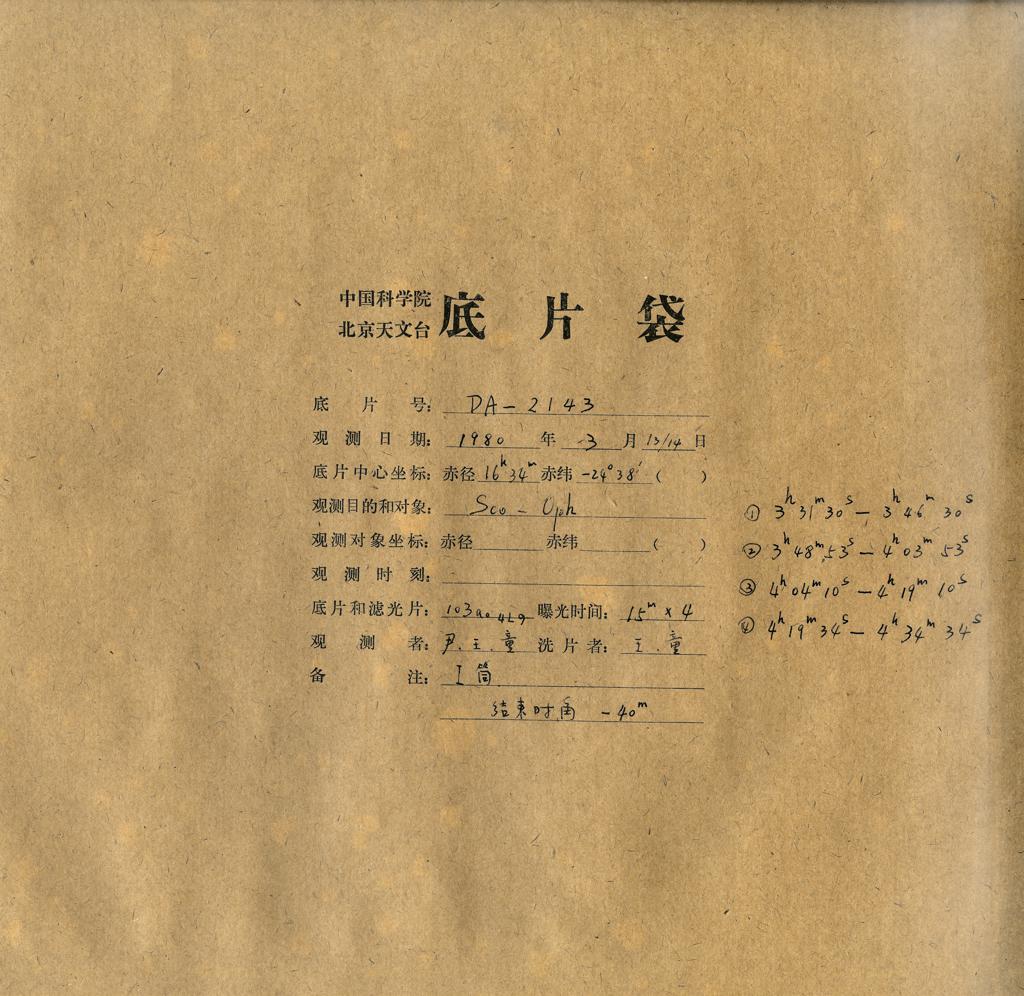 中国科学院
北京天文台
底片袋
底片号: DA-2143
观测日期: 1980 年 3 月 13/14 日
底片中心坐标: 赤径 16ʰ34ᵐ 赤纬 -24°38′ ( )
观测目的和对象: Sco - Oph
观测对象坐标: 赤径 赤纬 ( )
观测时刻:
底片和滤光片: 103ao 曝光时间: 15ᵐ×4
观测者: 尹.王.童 洗片者: 王.童
备注: I筒
结束时角 -40ᵐ
① 3ʰ31ᵐ30ˢ - 3ʰ46ᵐ30ˢ
② 3ʰ48ᵐ53ˢ - 4ʰ03ᵐ53ˢ
③ 4ʰ04ᵐ10ˢ - 4ʰ19ᵐ10ˢ
④ 4ʰ19ᵐ34ˢ - 4ʰ34ᵐ34ˢ